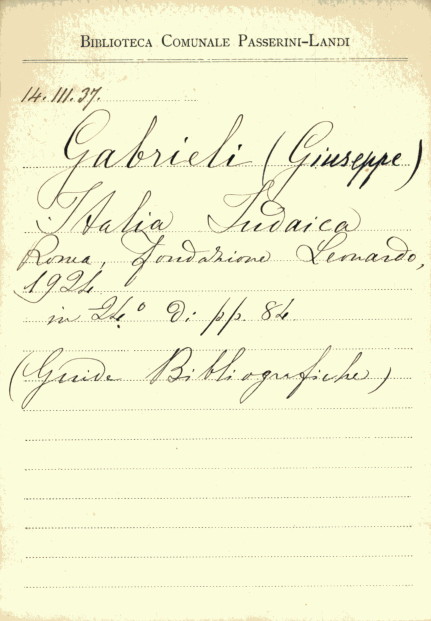 BIBLIOTECA COMUNALE PASSERINI-LANDI
14.III.37.
Gabrieli (Giuseppe)
Italia Judaica
Roma, Fondazione Leonardo,
1924
in 24.º di pp. 84
(Guide Bibliografiche)